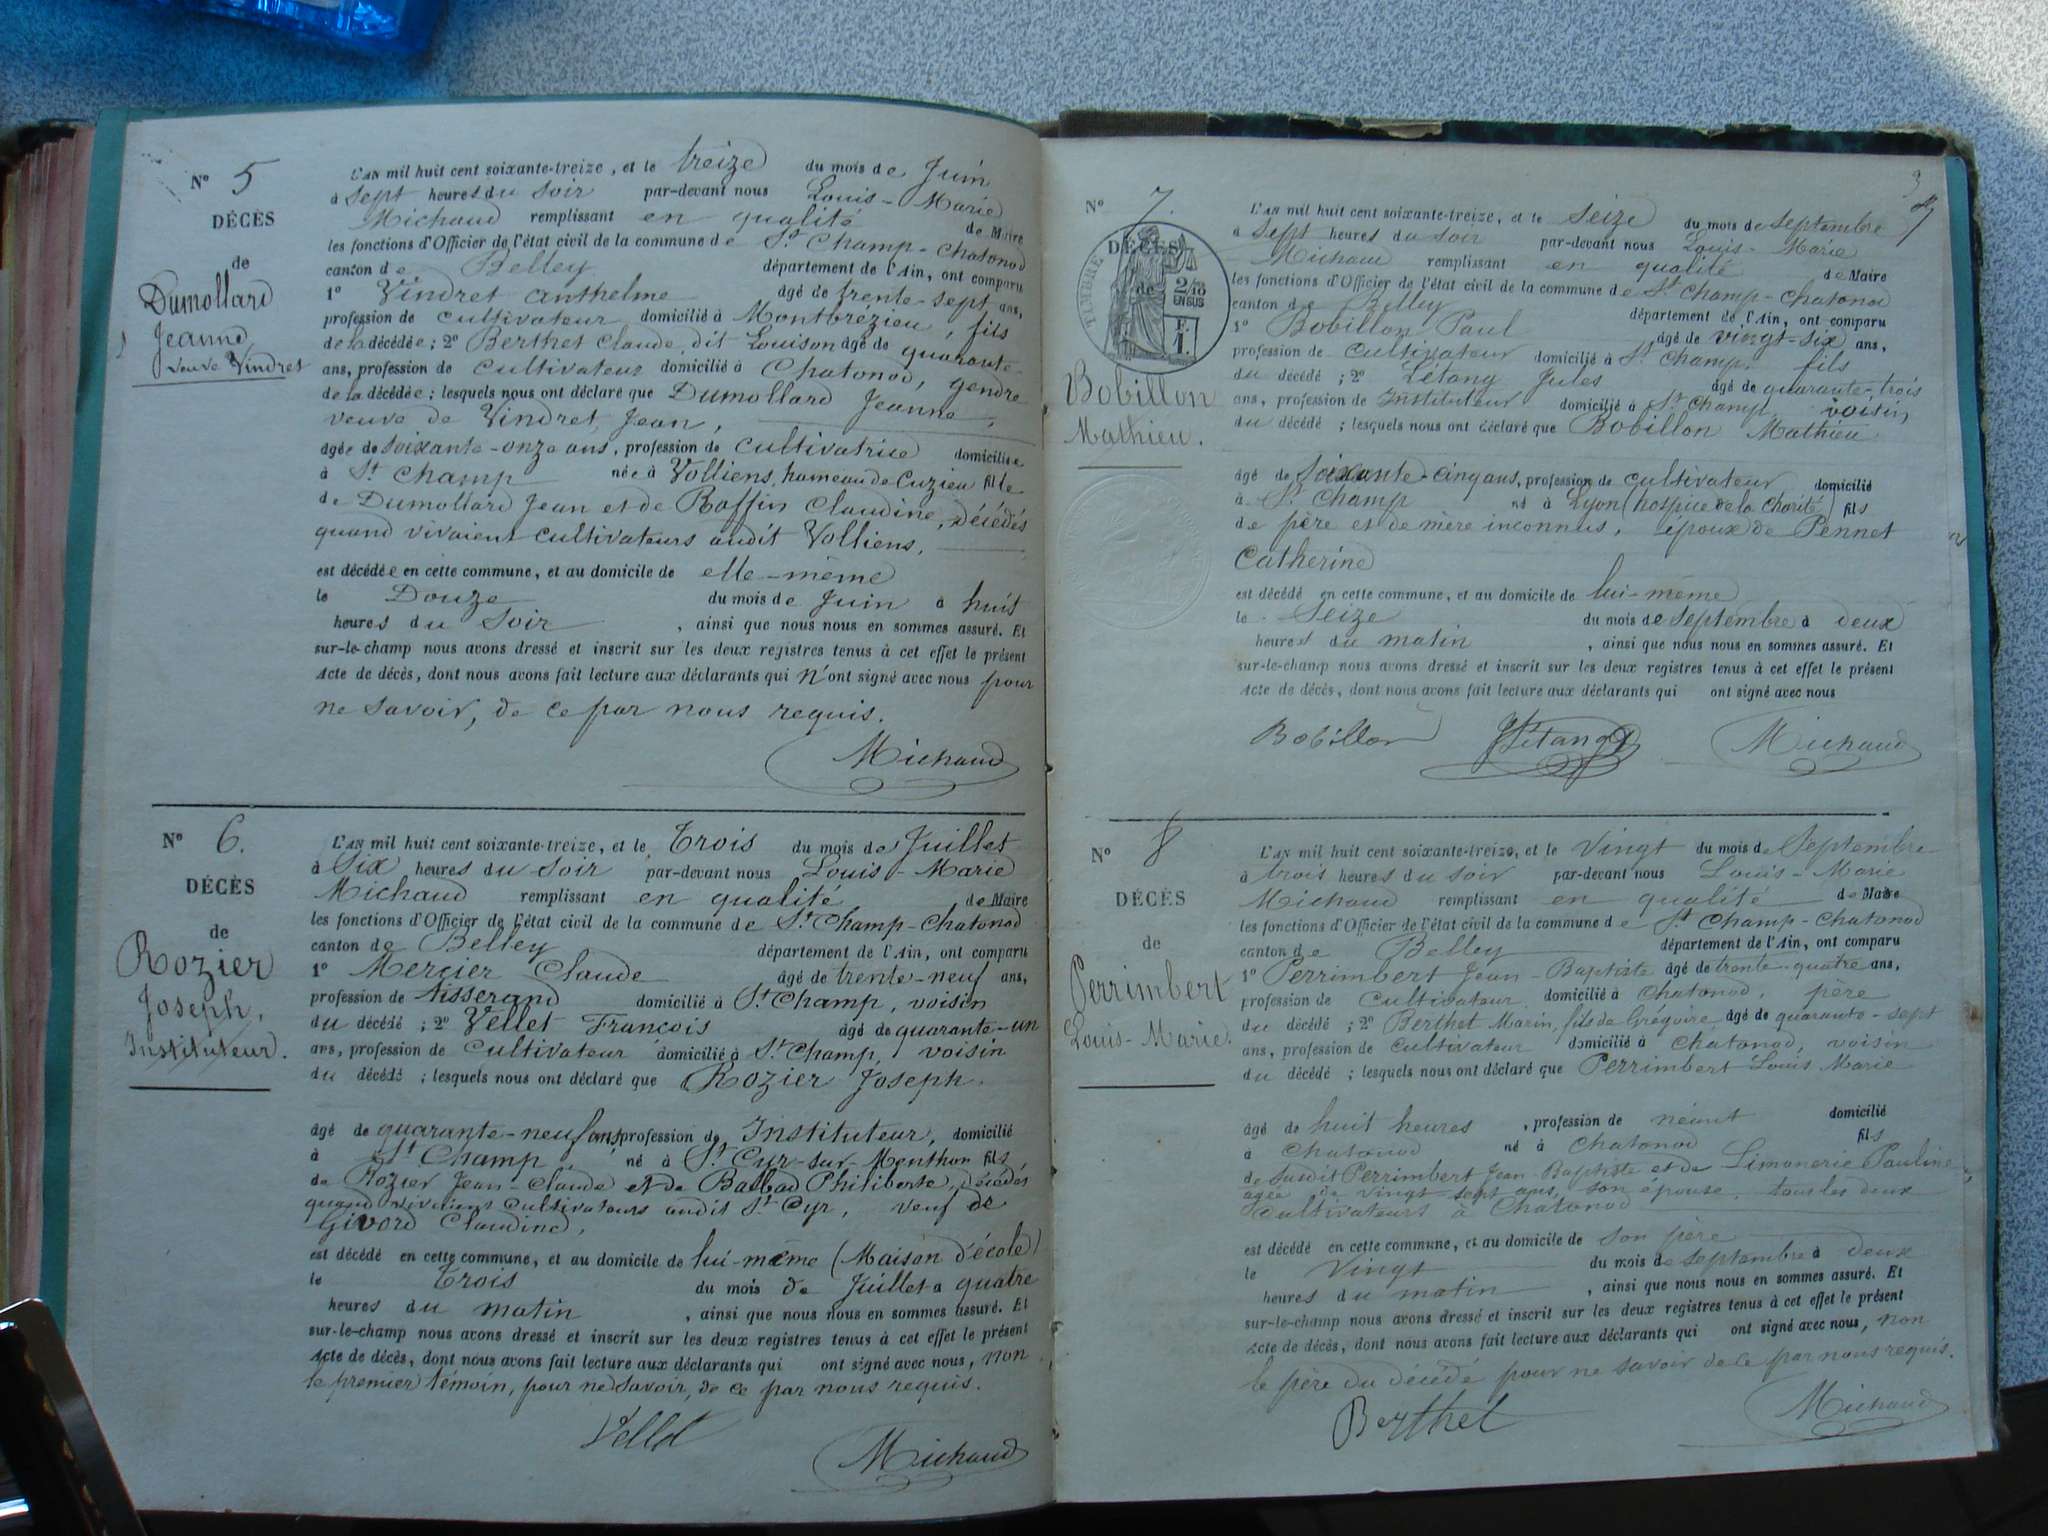 N° 5
DÉCÈS
de
Dumollard
Jeanne
veuve Vindret
L'AN mil huit cent soixante-treize, et le treize du mois de Juin
à sept heures du soir par-devant nous Louis-Marie
Michaud remplissant en qualité de Maire
les fonctions d'Officier de l'état civil de la commune de St Champ-Chatonod
canton de Belley département de l'Ain, ont comparu
1° Vindret anthelme âgé de trente-sept ans,
profession de cultivateur domicilié à Montbrezieu, fils
de la décédée ; 2° Berthet Claude, dit Louison âgé de quarante-
ans, profession de cultivateur domicilié à Chatonod, gendre
de la décédée ; lesquels nous ont déclaré que Dumollard Jeanne,
veuve de Vindret Jean,
âgée de soixante-onze ans, profession de cultivatrice domiciliée
à St Champ née à Volliens, hameau de Cuzieu fille
de Dumollard Jean et de Raffin Claudine, décédés
quand vivaient cultivateurs audit Volliens,
est décédée en cette commune, et au domicile de elle-même
le Douze du mois de Juin à huit
heures du soir , ainsi que nous nous en sommes assuré. Et
sur-le-champ nous avons dressé et inscrit sur les deux registres tenus à cet effet le présent
Acte de décès, dont nous avons fait lecture aux déclarants qui n'ont signé avec nous pour
ne savoir, de ce par nous requis.
Michaud
N° 6.
DÉCÈS
de
Rozier
Joseph,
Instituteur.
L'AN mil huit cent soixante-treize, et le Trois du mois de Juillet
à Six heures du soir par-devant nous Louis-Marie
Michaud remplissant en qualité de Maire
les fonctions d'Officier de l'état civil de la commune de St Champ-Chatonod
canton de Belley département de l'Ain, ont comparu
1° Mercier Claude âgé de trente-neuf ans,
profession de tisserand domicilié à St Champ, voisin
du décédé ; 2° Vellet François âgé de quarante-un
ans, profession de cultivateur domicilié à St Champ, voisin
du décédé ; lesquels nous ont déclaré que Rozier Joseph,
âgé de quarante-neuf ans profession de Instituteur, domicilié
à St Champ né à St Cyr-sur-Menthon fils
de Rozier Jean-Claude et de Philiberte, décédés
quand vivaient cultivateurs audit St Cyr, veuf de
Givord Claudine,
est décédé en cette commune, et au domicile de lui-même (Maison d'école)
le Trois du mois de Juillet à quatre
heures du matin , ainsi que nous nous en sommes assuré. Et
sur-le-champ nous avons dressé et inscrit sur les deux registres tenus à cet effet le présent
Acte de décès, dont nous avons fait lecture aux déclarants qui ont signé avec nous, non
le premier témoin, pour ne savoir, de ce par nous requis.
Vellet
Michaud
3
N° 7.
DÉCÈS
de
TIMBRE
2/10
EN SUS
F.
1.
Bobillon
Mathieu.
L'AN mil huit cent soixante-treize, et le Seize du mois de septembre
à Sept heures du soir par-devant nous Louis-Marie
Michaud remplissant en qualité de Maire
les fonctions d'Officier de l'état civil de la commune de St Champ-Chatonod
canton de Belley département de l'Ain, ont comparu
1° Bobillon Paul âgé de vingt-six ans,
profession de cultivateur domicilié à St Champ, fils
du décédé ; 2° Létang Jules âgé de quarante-trois
ans, profession de Instituteur domicilié à St Champ, voisin
du décédé ; lesquels nous ont déclaré que Bobillon Mathieu
âgé de soixante-cinq ans, profession de cultivateur domicilié
à St Champ né à Lyon (hospice de la Charité) fils
de père et de mère inconnus, époux de Pennet
Catherine
est décédé en cette commune, et au domicile de lui-même
le Seize du mois de septembre à deux
heures du matin , ainsi que nous nous en sommes assuré. Et
sur-le-champ nous avons dressé et inscrit sur les deux registres tenus à cet effet le présent
Acte de décès, dont nous avons fait lecture aux déclarants qui ont signé avec nous
Bobillon Létang Michaud
N° 8
DÉCÈS
de
Perrimbert
Louis-Marie.
L'AN mil huit cent soixante-treize, et le Vingt du mois de Septembre
à trois heures du soir par-devant nous Louis-Marie
Michaud remplissant en qualité de Maire
les fonctions d'Officier de l'état civil de la commune de St Champ-Chatonod
canton de Belley département de l'Ain, ont comparu
1° Perrimbert Jean-Baptiste âgé de trente-quatre ans,
profession de cultivateur domicilié à Chatonod, père
du décédé ; 2° Berthet Marin, fils de Grégoire, âgé de quarante-sept
ans, profession de cultivateur domicilié à Chatonod, voisin
du décédé ; lesquels nous ont déclaré que Perrimbert Louis Marie
âgé de huit heures , profession de néant domicilié
à Chatonod né à Chatonod fils
de susdit Perrimbert Jean-Baptiste et de Limonerie Pauline
agée de vingt-sept ans, son épouse, tous les deux
cultivateurs à Chatonod
est décédé en cette commune, et au domicile de son père
le Vingt du mois de septembre à deux
heures du matin , ainsi que nous nous en sommes assuré. Et
sur-le-champ nous avons dressé et inscrit sur les deux registres tenus à cet effet le présent
Acte de décès, dont nous avons fait lecture aux déclarants qui ont signé avec nous, non
le père du décédé pour ne savoir de ce par nous requis.
Berthet
Michaud